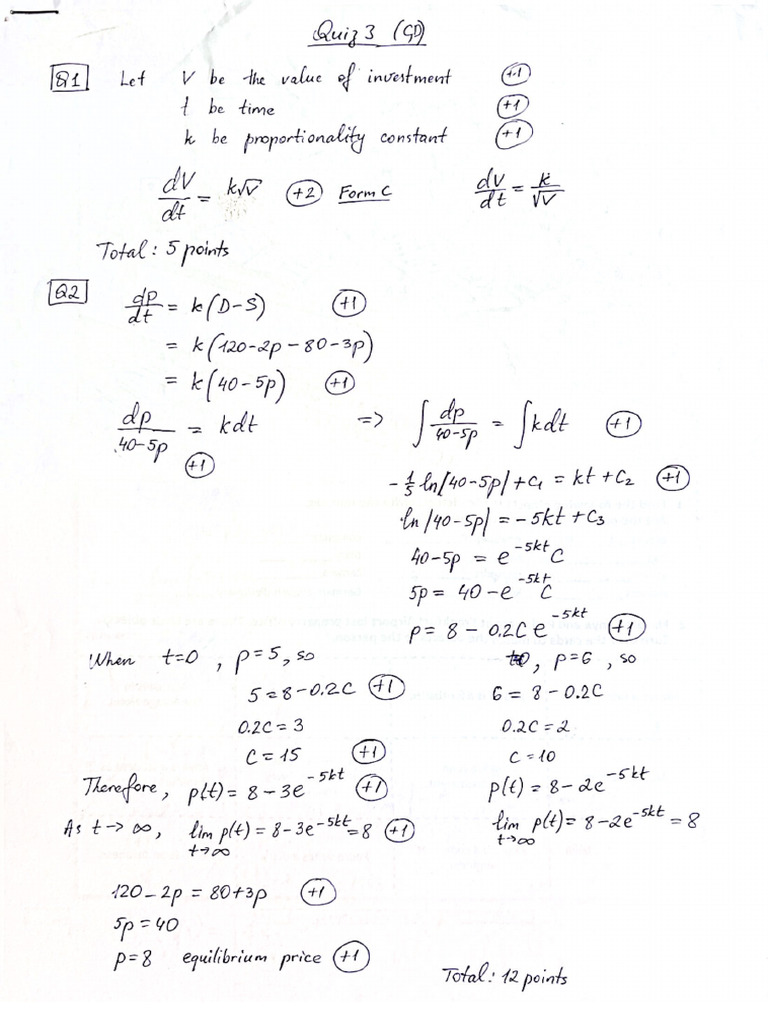 Quiz 3 (GD)
Q1 Let V be the value of investment +1
t be time +1
k be proportionality constant +1
dV/dt = k√V +2 Form C dV/dt = k/√V
Total: 5 points
Q2 dp/dt = k(D-S) +1
= k(120-2p-80-3p)
= k(40-5p) +1
dp/40-5p = kdt => ∫ dp/40-5p = ∫kdt +1
+1
-1/5 ln|40-5p| + C₁ = kt + C₂ +1
ln|40-5p| = -5kt + C₃
40-5p = e^-5kt C
5p = 40 - e^-5kt C
p = 8 - 0.2C e^-5kt +1
When t=0, p=5, so t=0, p=6, so
5 = 8-0.2C +1 6 = 8-0.2C
0.2C = 3 0.2C = 2
C = 15 +1 C = 10
Therefore, p(t) = 8-3e^-5kt +1 p(t) = 8-2e^-5kt
As t→∞, lim t→∞ p(t) = 8-3e^-5kt = 8 +1 lim t→∞ p(t) = 8-2e^-5kt = 8
120-2p = 80+3p +1
5p = 40
p = 8 equilibrium price +1
Total: 12 points